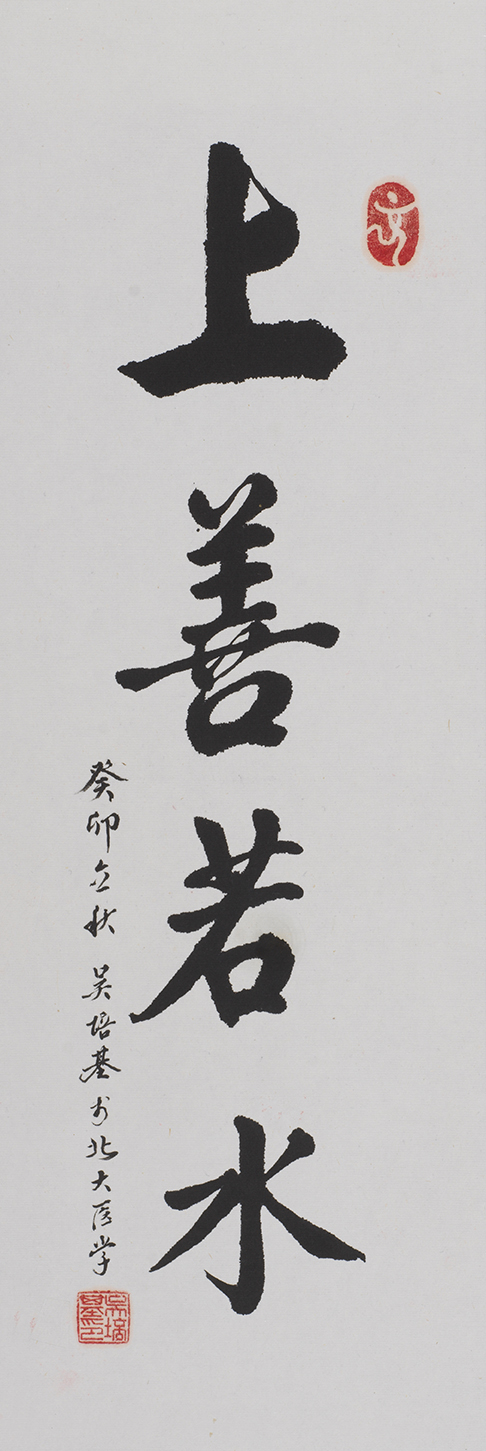 上善若水
癸卯立秋 吴培基书于北大医学